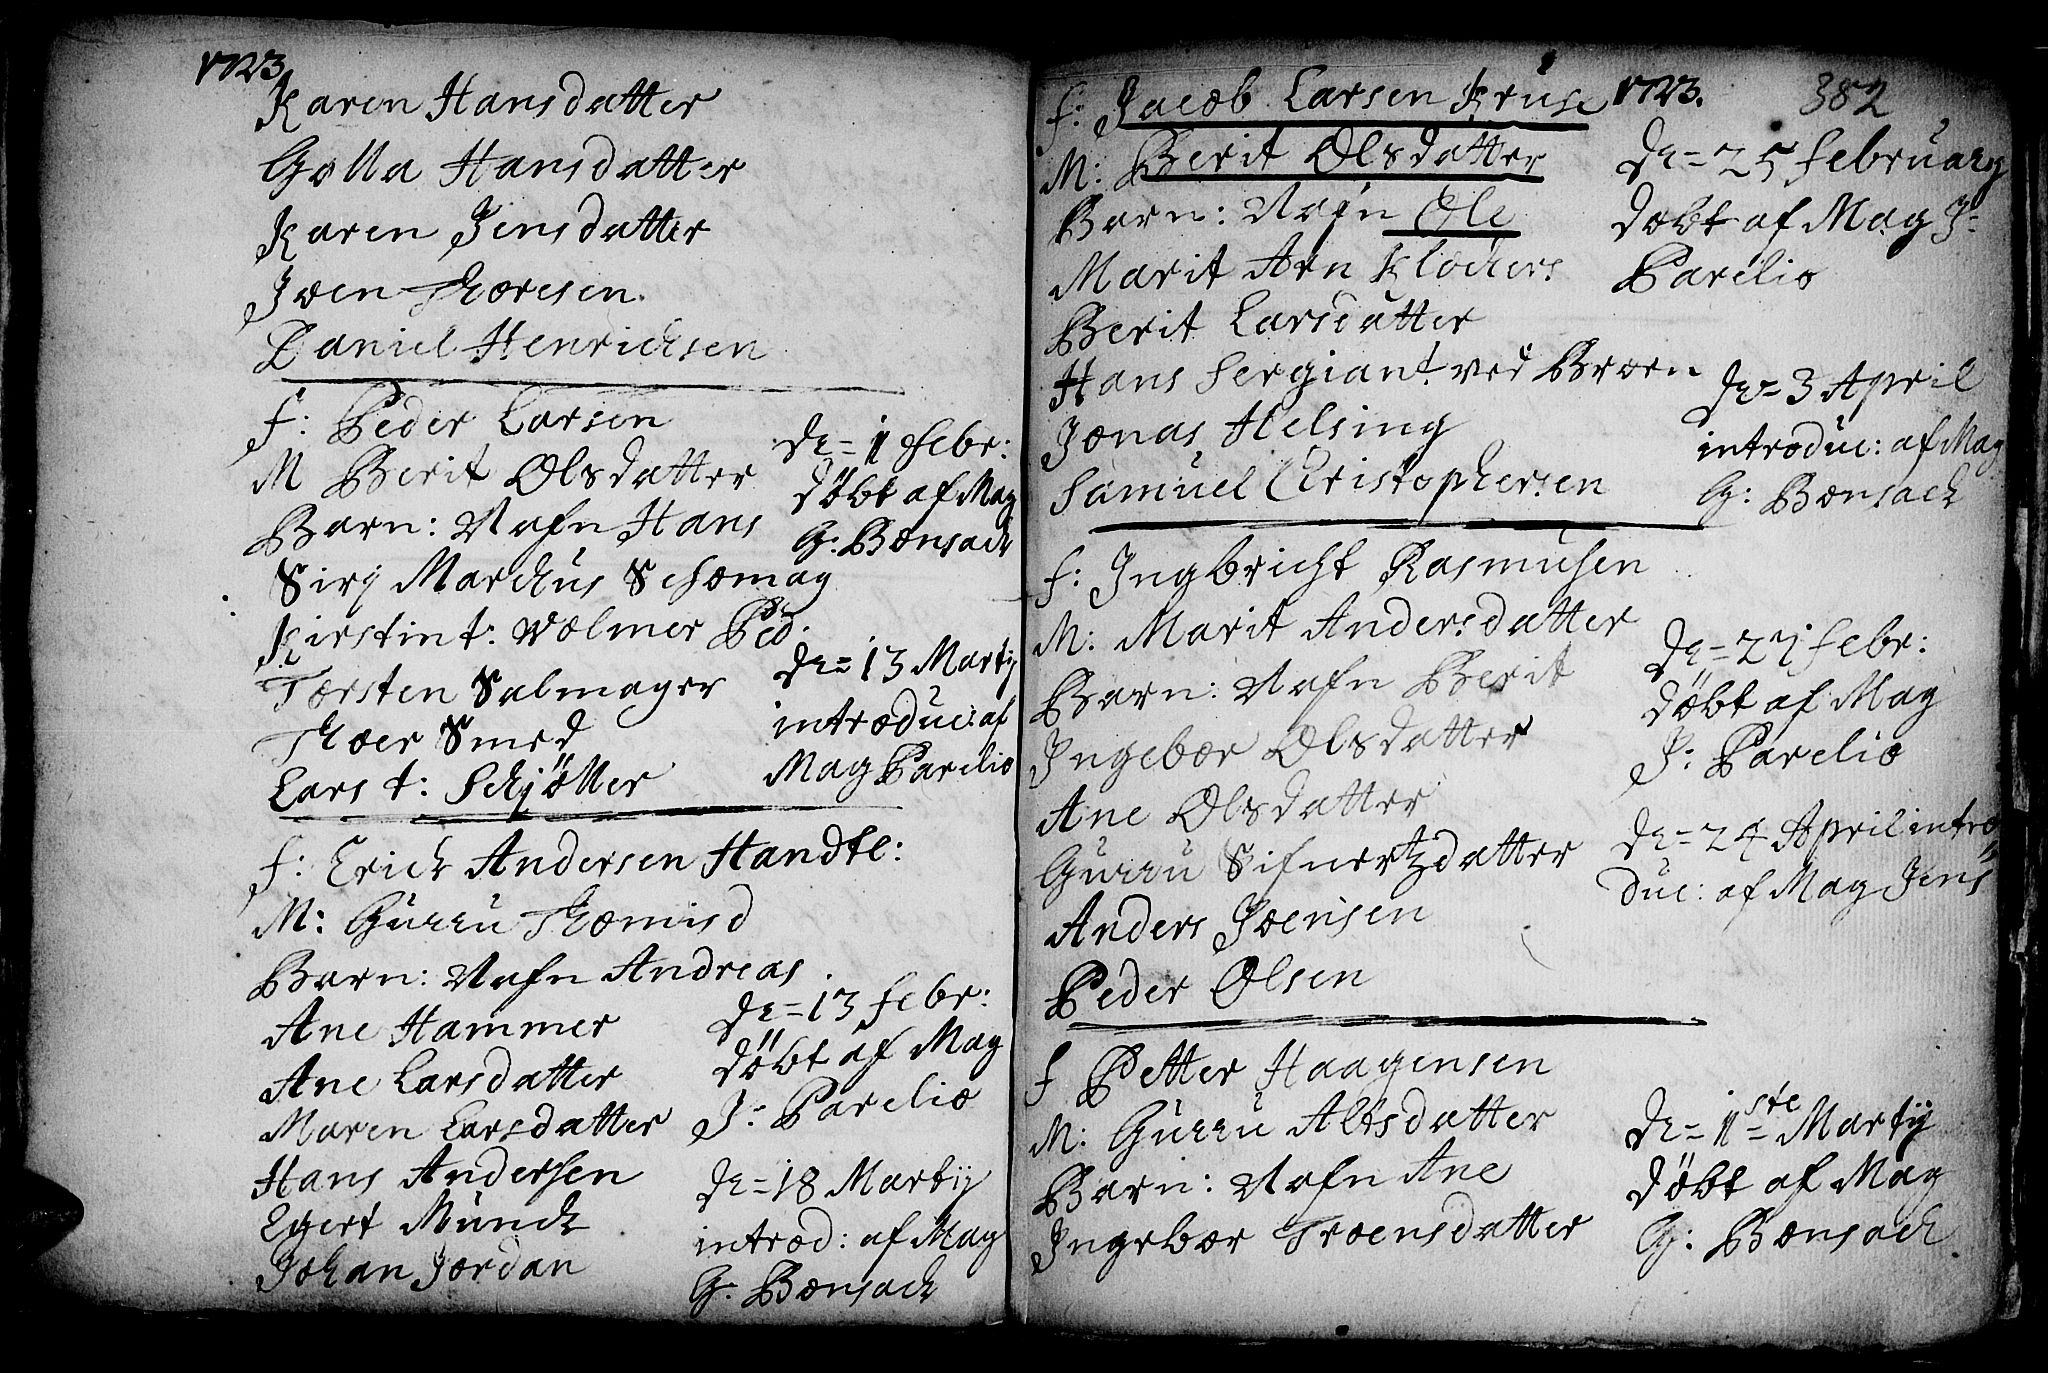 1723.
Karen Hansdatter
Golla Hansdatter
Karen Jensdatter
Joen Thoresen.
Daniel Henrichsen
f: Peder Larsen
M Berit Olsdatter
Barn: Nafn Hans
Sirj Marchus Schomag
Kirstin t: Wolmer Ped.
Torsten Salmager
Thoer Smed
Lars t: Schjötter
de= 11 Febr:
döbt af Mag
G: Bonsach
de= 13 Martij
introduc: af
Mag Parelio
f: Erich Andersen Handtl:
M: Gurru Thomisd
Barn: Nafn Andreas.
Ane Hammer
Ane Larsdatter
Maren Larsdatter
Hans Andersen
Egert Münch
Johan Jordan
de= 13 Febr:
döbt af Mag
J: Parelio
de= 18 Martij
introd: af Mag
G: Bonsach
1723. 382
f: Jacob Larsen Krüse
M: Berit Olsdatter
Barn: Nafn Ole
Marit Arn Klochers
Berit Larsdatter
Hans Sergiant ved Broen
Jonas Helsing
Samuel Christophersen
de= 25 Februarij
döbt af Mag J:
Parelio
de= 3 April
introduc: af Mag
G: Bonsach
f: Ingbricht Rasmusen
M: Marit Andersdatter
Barn: Nafn Berit
Ingebor Olsdatter
Ane Olsdatter
Gurru Sifuertzdatter
Anders Joensen
Peder Olsen
de= 27 Febr:
döbt af Mag
J: Parelio
de= 24 April intro
duc: af Mag Jens
f Petter Haagensen
M: Gurru Alesdatter
Barn: Nafn Ane
Ingebor Troensdatter
de= 1ste= Martij
döbt af Mag
G: Bonsach